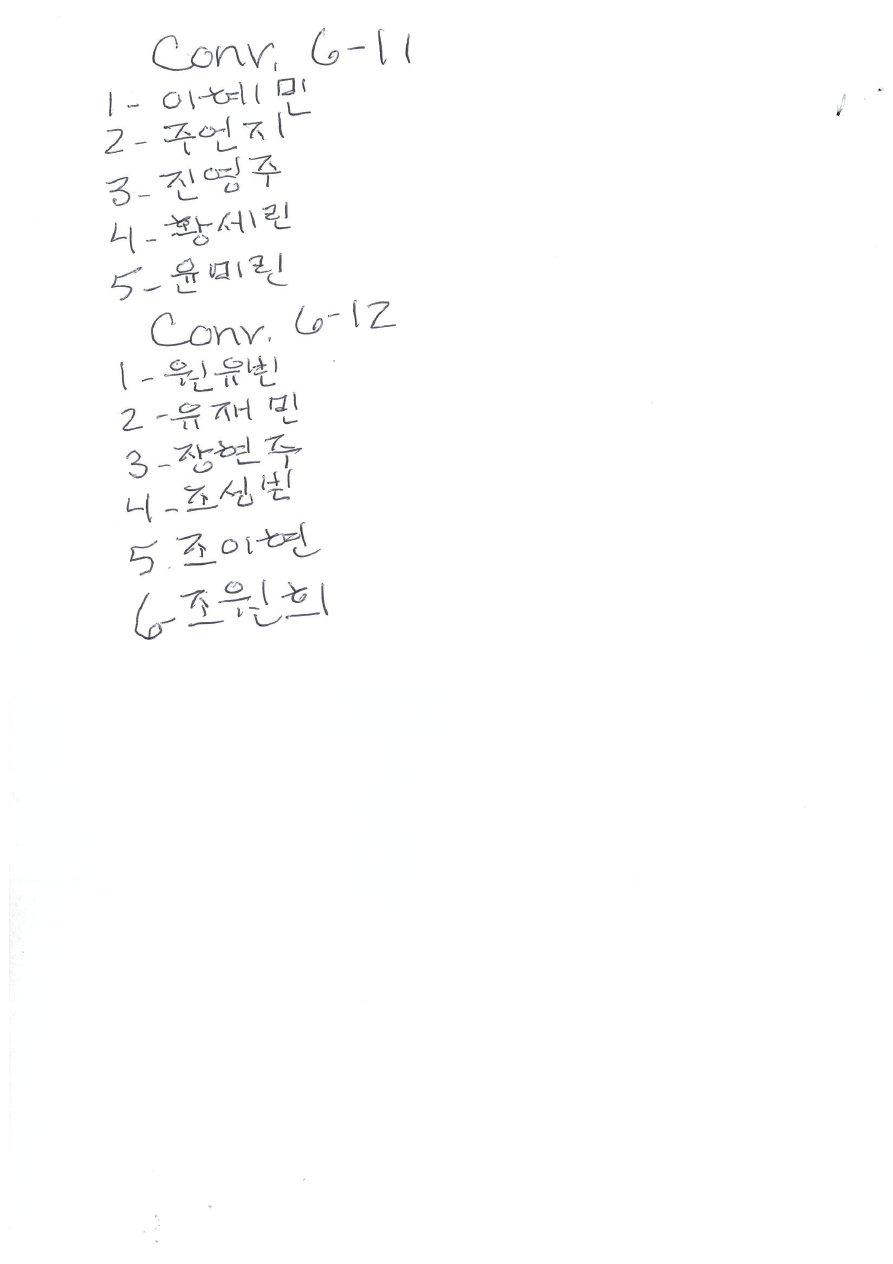 Conv. 6-11
1- 이혜민
2- 주언지
3- 진영주
4- 황세린
5- 윤미린
Conv. 6-12
1- 원유빈
2- 유재민
3- 장현주
4- 조성빈
5. 조이현
6- 조원희